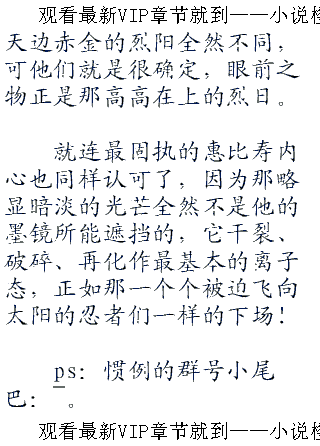 观看最新VIP章节就到——小说
天边赤金的烈阳全然不同，
可他们就是很确定，眼前之
物正是那高高在上的烈日。
就连最固执的惠比寿内
心也同样认可了，因为那略
显暗淡的光芒全然不是他的
墨镜所能遮挡的，它干裂、
破碎、再化作最基本的离子
态，正如那一个个被迫飞向
太阳的忍者们一样的下场！
ps：惯例的群号小尾
巴：。
观看最新VIP章节就到——小说